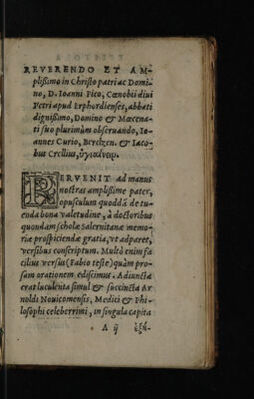 REVERENDO ET AM-
plißimo in Christo patri ac Domi
no, D. Ioanni Pico, Cœnobij diui
Petri apud Erphordienses, abbati
dignißimo, Domino & Mœcena-
ti suo plurimùm obseruando, Io-
annes Curio, Berckẽn. & Iaco-
bus Crellius, ὑγιαίνειν.
PERVENIT ad manus
nostras amplißime pater,
opusculum quoddã de tu-
enda bona valetudine, à doctoribus
quondam scholæ Salernitanæ memo-
riæ prospiciendæ gratia, vt adparet,
versibus conscriptum. Multò enim fa
cilius versus (Fabio teste) quàm pro-
sam orationem ediscimus. Adiuncta
erat luculenta simul & succincta Ar
noldi Nouicomensis, Medici & Phi-
losophi celeberrimi, in singula capita
A ij